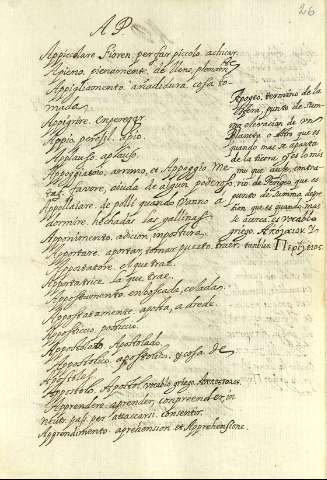 26
A P
Appiccolare. Fioren. per far piccolo, achicar.
Apieno, pienamente, de lleno,
Appigliamento. añadidura, cosa to-
mada.
Appigrire. emperezer
Appio, perefil. apio.
Applauso. aplauso.
Appoggiatoio. arrimo, et Appoggio. Me-
taf. favore, aiuda de algun poderoso,
Appollaiare. de polli quando vanno a
dormire. hechadas las gallinas.
Apponimento. adicion, impostura.
Apportare. aportar, tomar puerto. traer, tambien.
Apportatore. el que trae.
Apportatrice. la que trae.
Appostamento. emboscada, celada.
Appostatamente. aposta, a drede.
Apposticcio. postiço.
Appostolato. Apostolado.
Appostolico. apostolico, y cosa de
Apostoles.
Appostolo. Apostol. vocablo griego.
Apprendere. aprender, comprender, in
neutr. pass. per attaccarsi. consentir.
Apprendimento. aprehension et Apprehensione.
Apogeo. termino de la
Esfera, punto de sum-
ma elevacion de un
Planeta o Astro que es
quando mas se aparta
de la tierra, y es lo mis
mo que auge, contra-
rio, de Perigeo que es
punto de summa depre-
sion que es quando mas
se acerca. es vocablo
griego